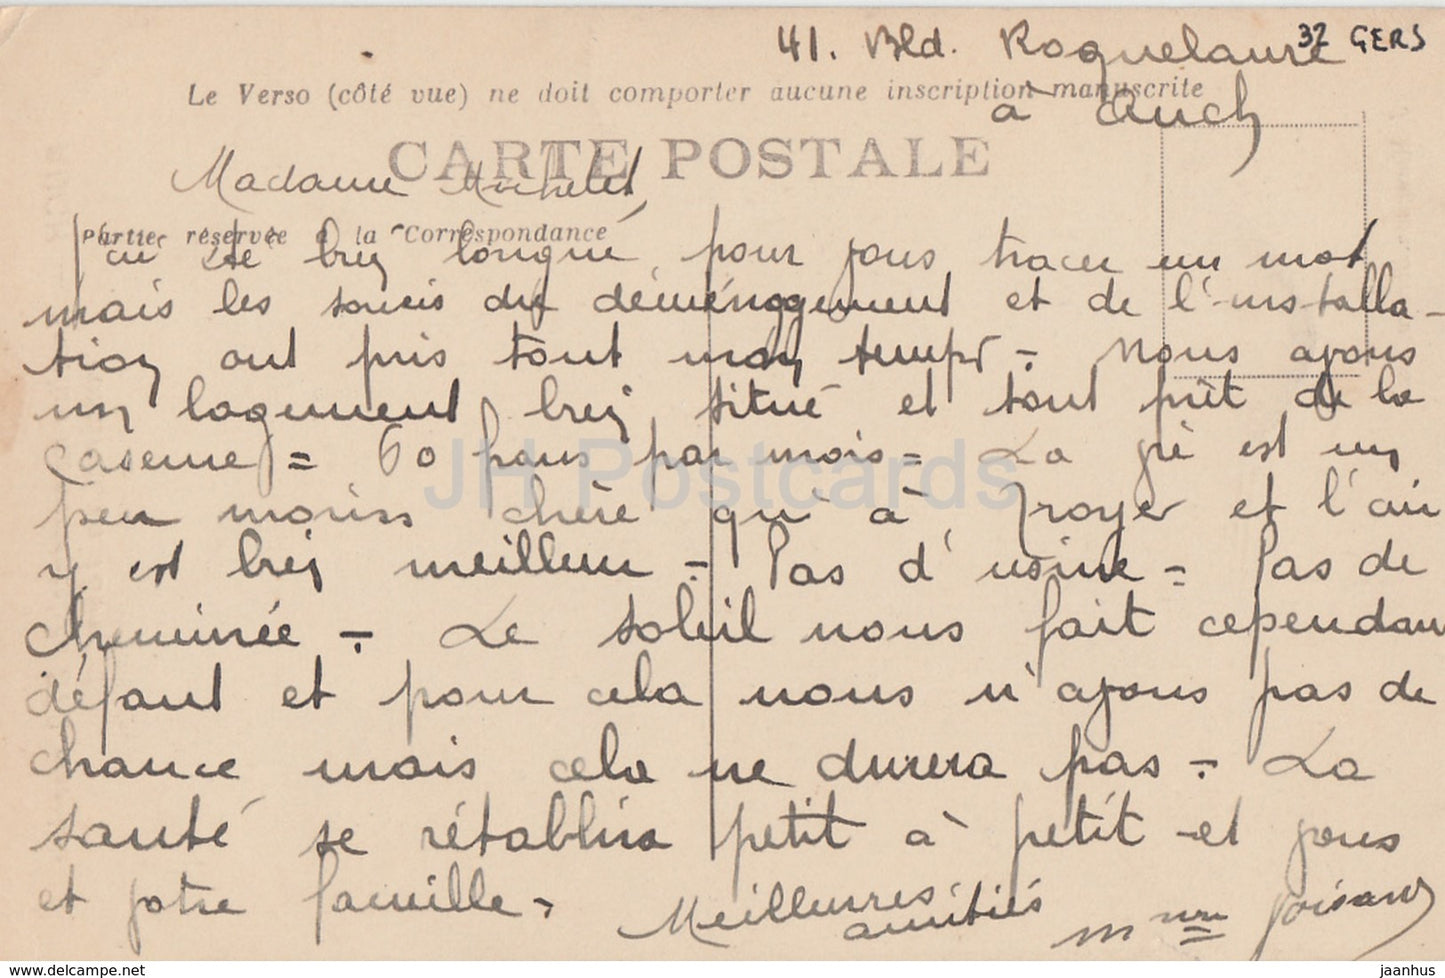 41. Bld. Roquelaure 32 GERS
Le Verso (côté vue) ne doit comporter aucune inscription manuscrite
à Auch
CARTE POSTALE
Madame Michelet,
Partie réservée à la Correspondance
J'ai été bien longue pour vous tracer un mot
mais les soucis du déménagement et de l'installa-
tion ont pris tout mon temps - Nous avons
un logement bien situé et tout prêt de la
caserne = 60 frans par mois = La vie est un
peu moins chère qu'à Troyes et l'air
y est bien meilleur - Pas d'usine = Pas de
cheminée - Le soleil nous fait cependant
défaut et pour cela nous n'avons pas de
chance mais cela ne durera pas - La
santé se rétablira petit à petit - et vous
et votre famille -
Meilleures
amitiés
JH Postcards
www.delcampe.net
jaanhus